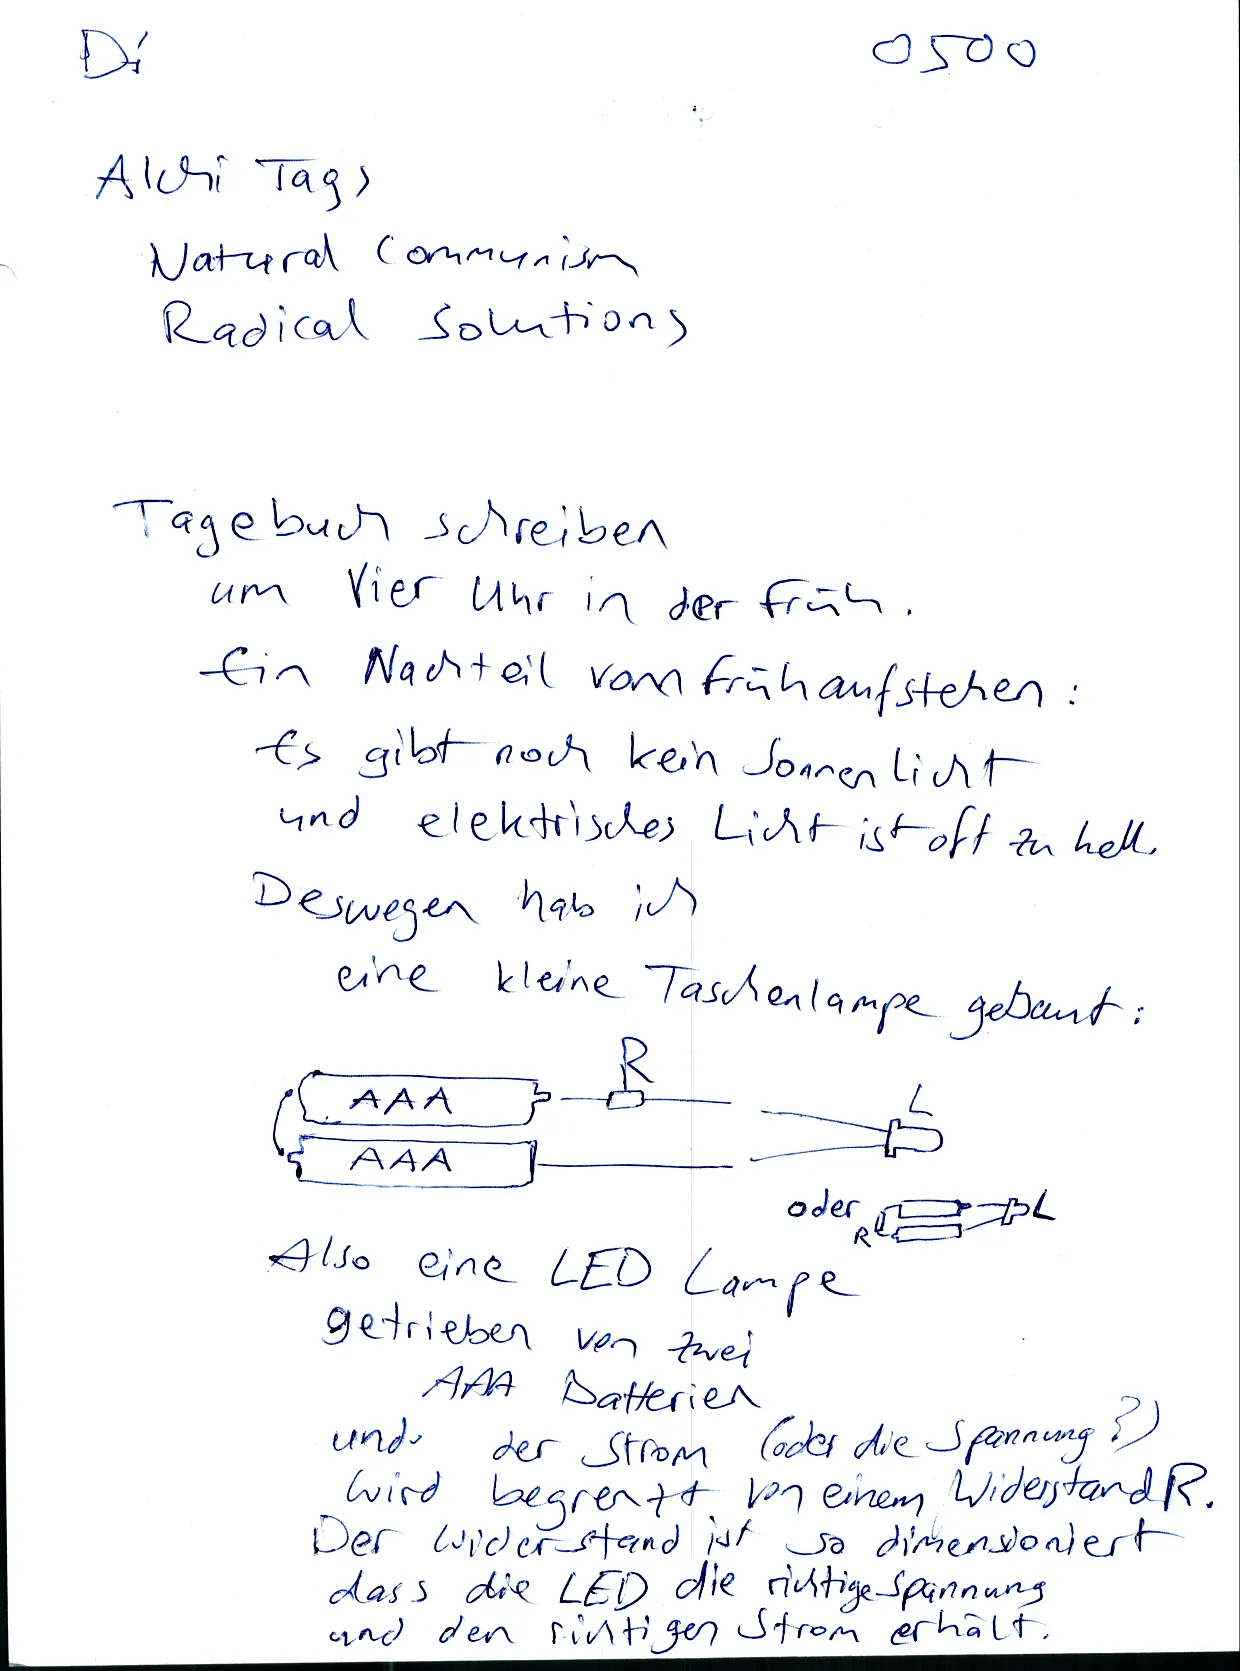 Di 0500
Alchi Tags
Natural Communism
Radical Solutions
Tagebuch schreiben
um Vier Uhr in der Früh.
Ein Nachteil vom Frühaufstehen:
Es gibt noch kein Sonnenlicht
und elektrisches Licht ist oft zu hell.
Deswegen hab ich
eine kleine Taschenlampe gebaut:
R
AAA L
AAA
oder L
R
Also eine LED Lampe
getrieben von zwei
AAA Batterien
und der Strom (oder die Spannung?)
wird begrenzt von einem Widerstand R.
Der Widerstand ist so dimensioniert
dass die LED die richtige Spannung
und den richtigen Strom erhält.